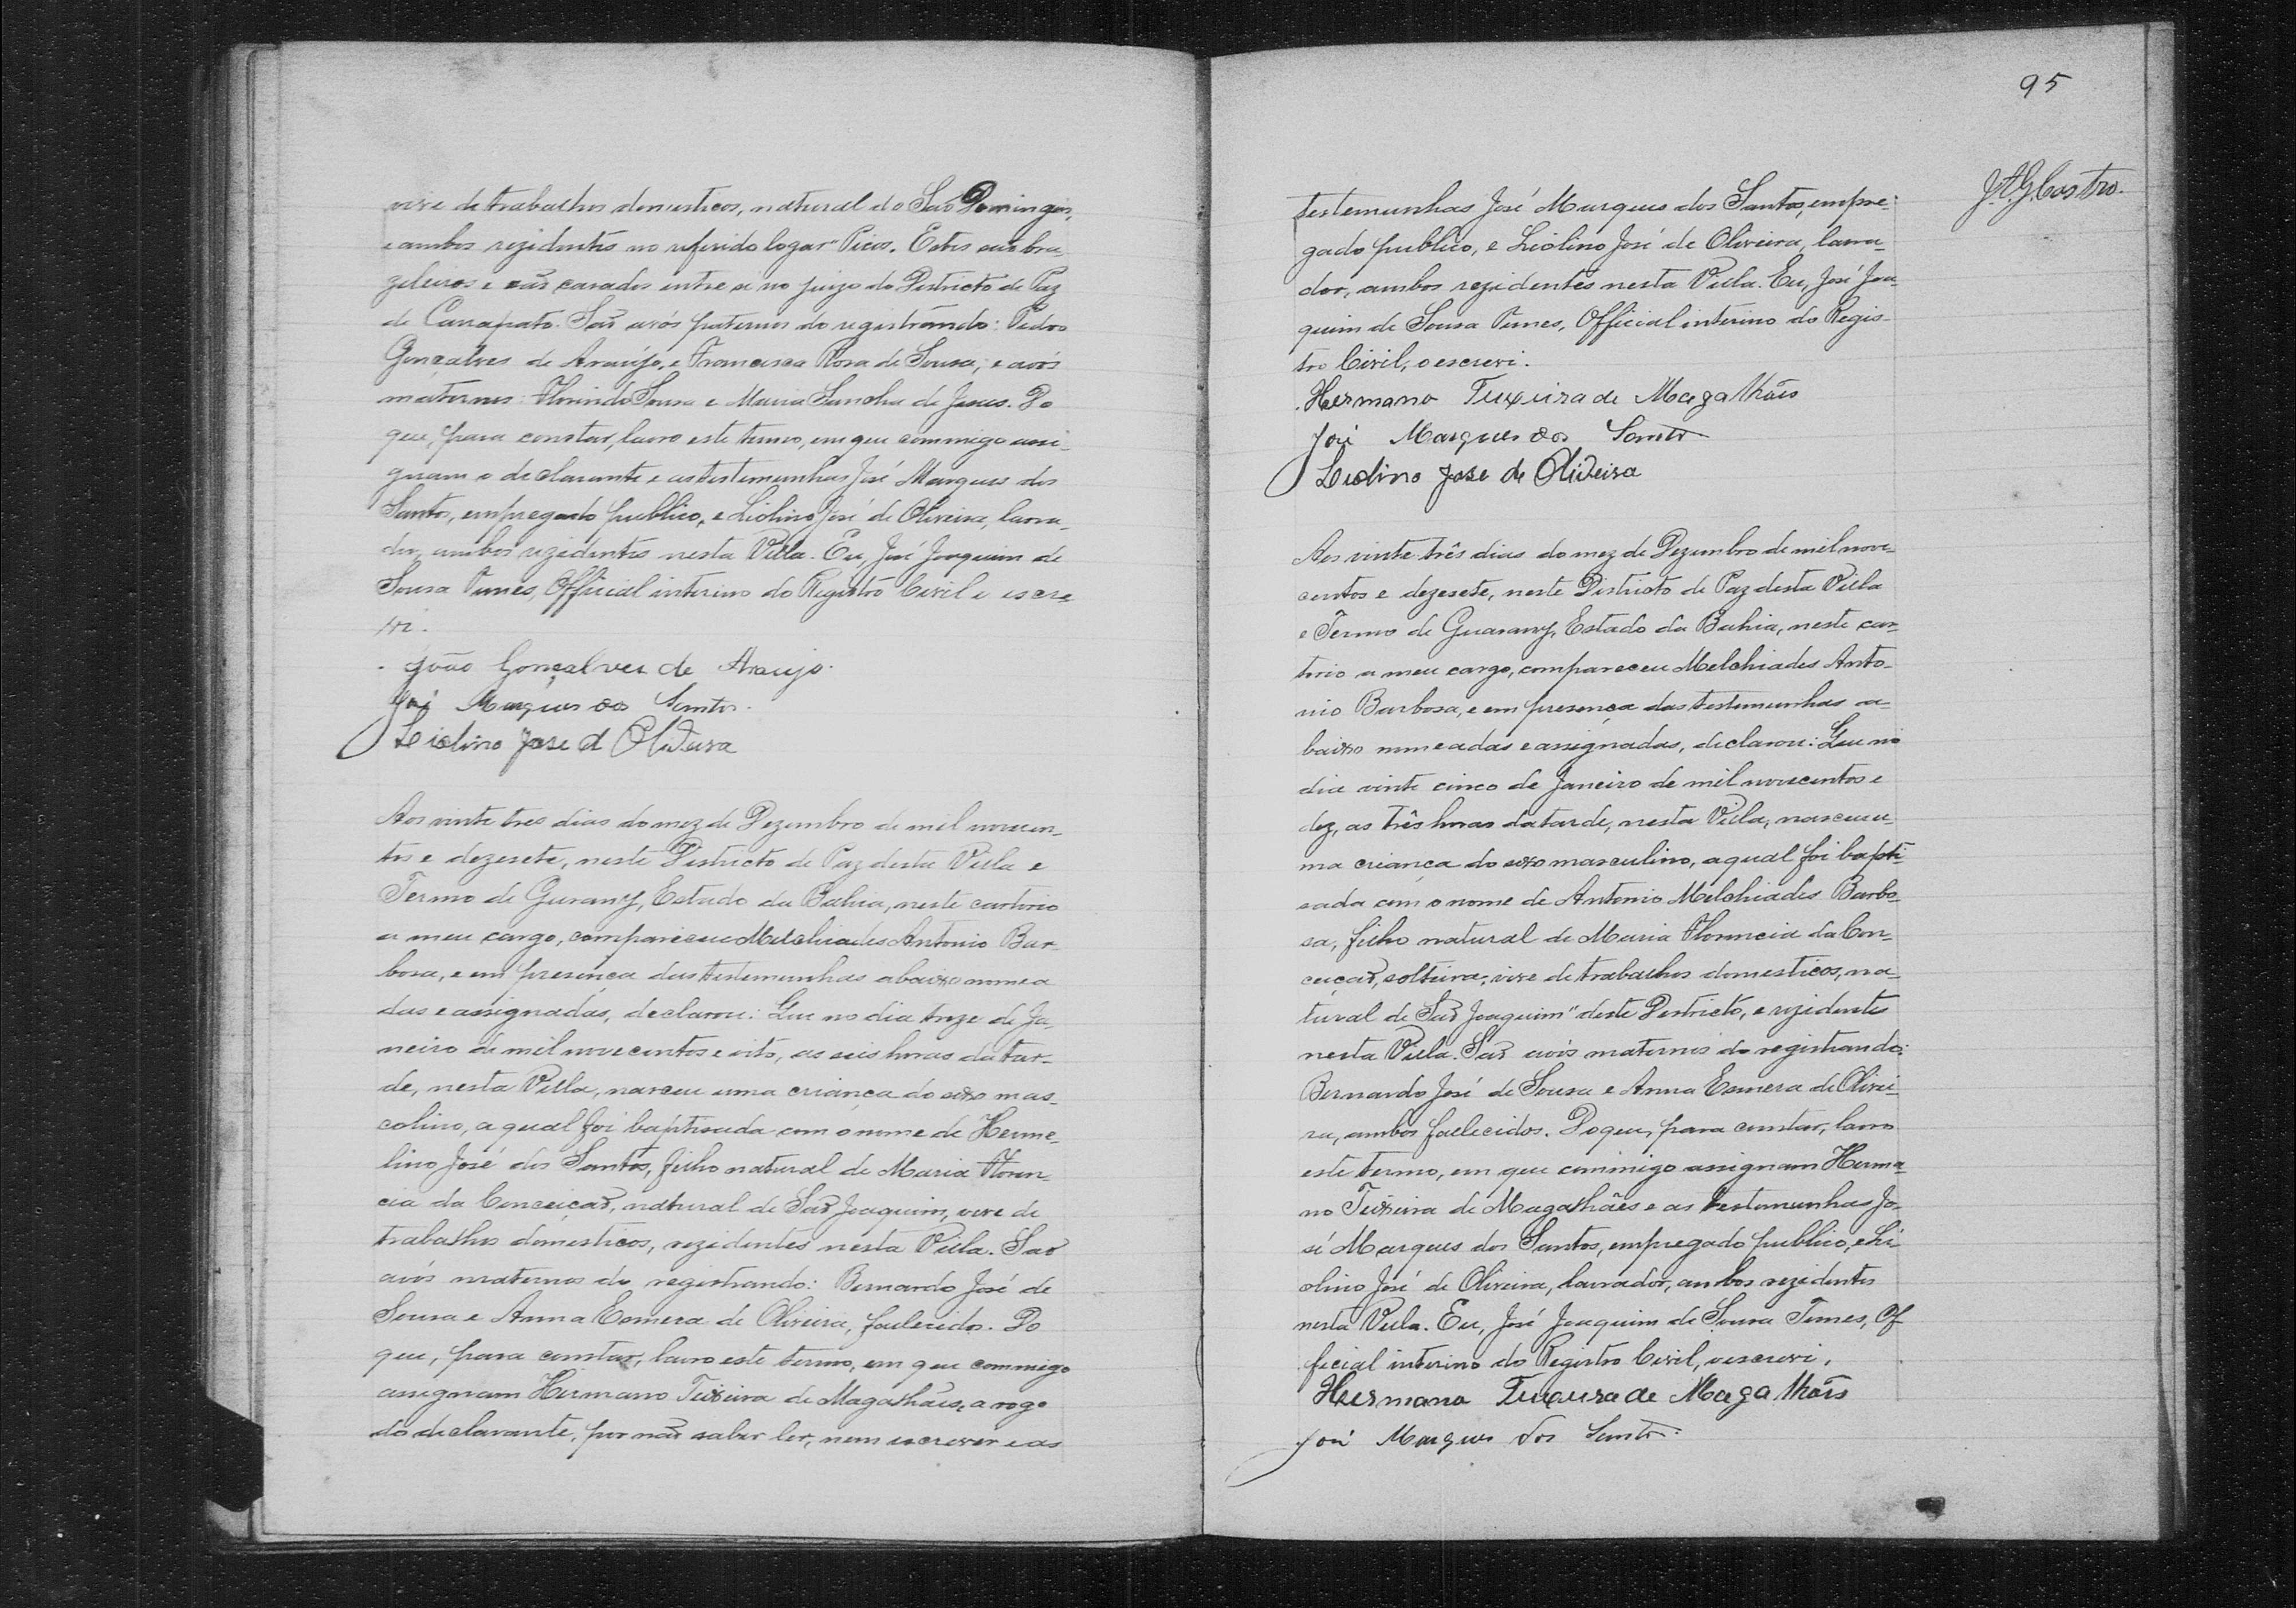 vive de trabalhos domesticos, natural do São Domingos,
e ambos rezidentes no referido logar "Picos. Estes são bra-
zileiros e são casados entre si no juizo do Districto de Paz
de Carrapato. São avós paternos do registrando: Pedro
Gonçalves de Araújo, e Francisca Rosa de Sousa; e avós
maternos: Florindo Sousa e Maria Sancha de Jesus. Do
que, para constar, lavro este termo, em que commigo assi-
gnam o declarante e as testemunhas José Marques dos
Santos, empregado publico, e Liolino José de Oliveira, lavra-
dor, ambos rezidentes nesta Villa. Eu, José Joaquim de
Sousa Tunes, Official interino do Registro Civil o escre-
vi.
João Gonçalves de Araujo.
José Marques dos Santos.
Liolino Jose d Oliveira
Aos vinte tres dias do mez de Dezembro de mil novecen-
tos e dezesete, neste Districto de Paz desta Villa e
Termo de Gurany, Estado da Bahia, neste cartorio
a meu cargo, compareceu Melchiades Antonio Bar-
bosa, e em presença das testemunhas abaixo nomea
das e assignadas, declarou: Que no dia treze de Ja-
neiro de mil novecentos e oito, as seis horas da tar-
de, nesta Villa, nasceu uma criança do sexo mas-
colino, a qual foi baptisada com o nome de Herme-
lino José dos Santos, filho natural de Maria Floren-
cia da Conceição, natural de São Joaquim, vive de
trabalhos domesticos, rezidentes nesta Villa. São
avós maternos do registrando: Bernardo José de
Sousa e Anna Esmera de Oliveira, fallecidos. Do
que, para constar, lavro este termo, em que commigo
assignam Hermano Teixeira de Magalhães, a rogo
do declarante, por não saber ler, nem escrever e as
95
J.A.G. Castro.
testemunhas José Marques dos Santos, empre-
gado publico, e Liolino José de Oliveira, lavra-
dor, ambos rezidentes nesta Villa. Eu, José Joa-
quim de Sousa Tunes, Official interino do Regis-
tro Civil, o escrevi.
Hermano Teixeira de Magalhães
José Marques dos Santos
Liolino Jose de Oliveira
Aos vinte três dias do mez de Dezembro de mil nove-
centos e dezesete, neste Districto de Paz desta Villa
e Termo de Guarany, Estado da Bahia, neste car-
torio a meu cargo, compareceu Melchiades Anto-
nio Barbosa, e em presença das testemunhas a-
baixo nomeadas e assignadas, declarou: Que no
dia vinte cinco de Janeiro de mil novecentos e
dez, as três horas da tarde, nesta Villa, nasceu u-
ma criança do sexo masculino, a qual foi bapti-
sada com o nome de Antonio Melchiades Barbo-
sa, filho natural de Maria Florencia da Con-
ceição, solteira, vive de trabalhos domesticos, na-
tural de São Joaquim" deste Destricto, e rezidentes
nesta Villa. São avós maternos do registrando:
Bernardo José de Sousa e Anna Esmera de Olivei-
ra, ambos fallecidos. Do que, para constar, lavro
este termo, em que commigo assignam Herma-
no Teixeira de Magalhães e as testemunhas Jo-
sé Marques dos Santos, empregado publico, e Li-
olino José de Oliveira, lavrador, ambos rezidentes
nesta Villa. Eu, José Joaquim de Sousa Tunes, Of-
ficial interino do Registro Civil, o escrevi.
Hermano Teixeira de Magalhães
José Marques dos Santos.